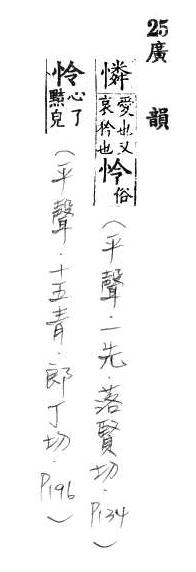 25廣韻
憐愛也又哀矜也怜俗(平聲·一先·落賢切·P134)
怜心了黠皃(平聲·十五青·郎丁切·P196)